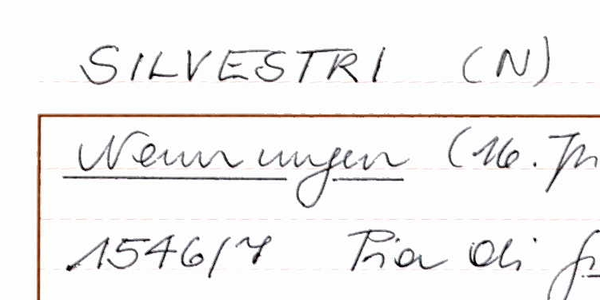 SILVESTRI (N)
Nennungen (16. Jh
1546/7 Pia di